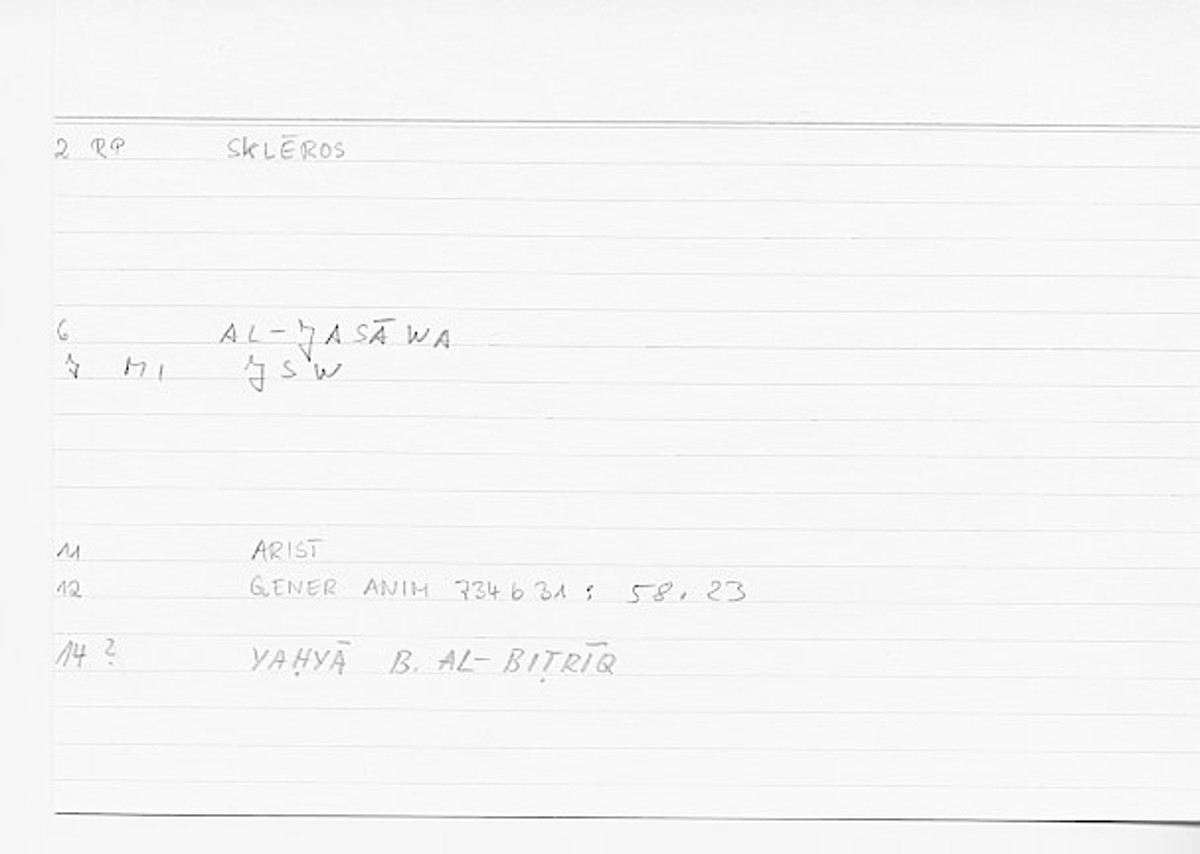 2 RP SKLĒROS
6 AL-JASĀWA
7 M1 JSW
11 ARIST
12 GENER ANIM 734b31: 58.23
14 ? YAḤYĀ B. AL-BIṬRĪQ